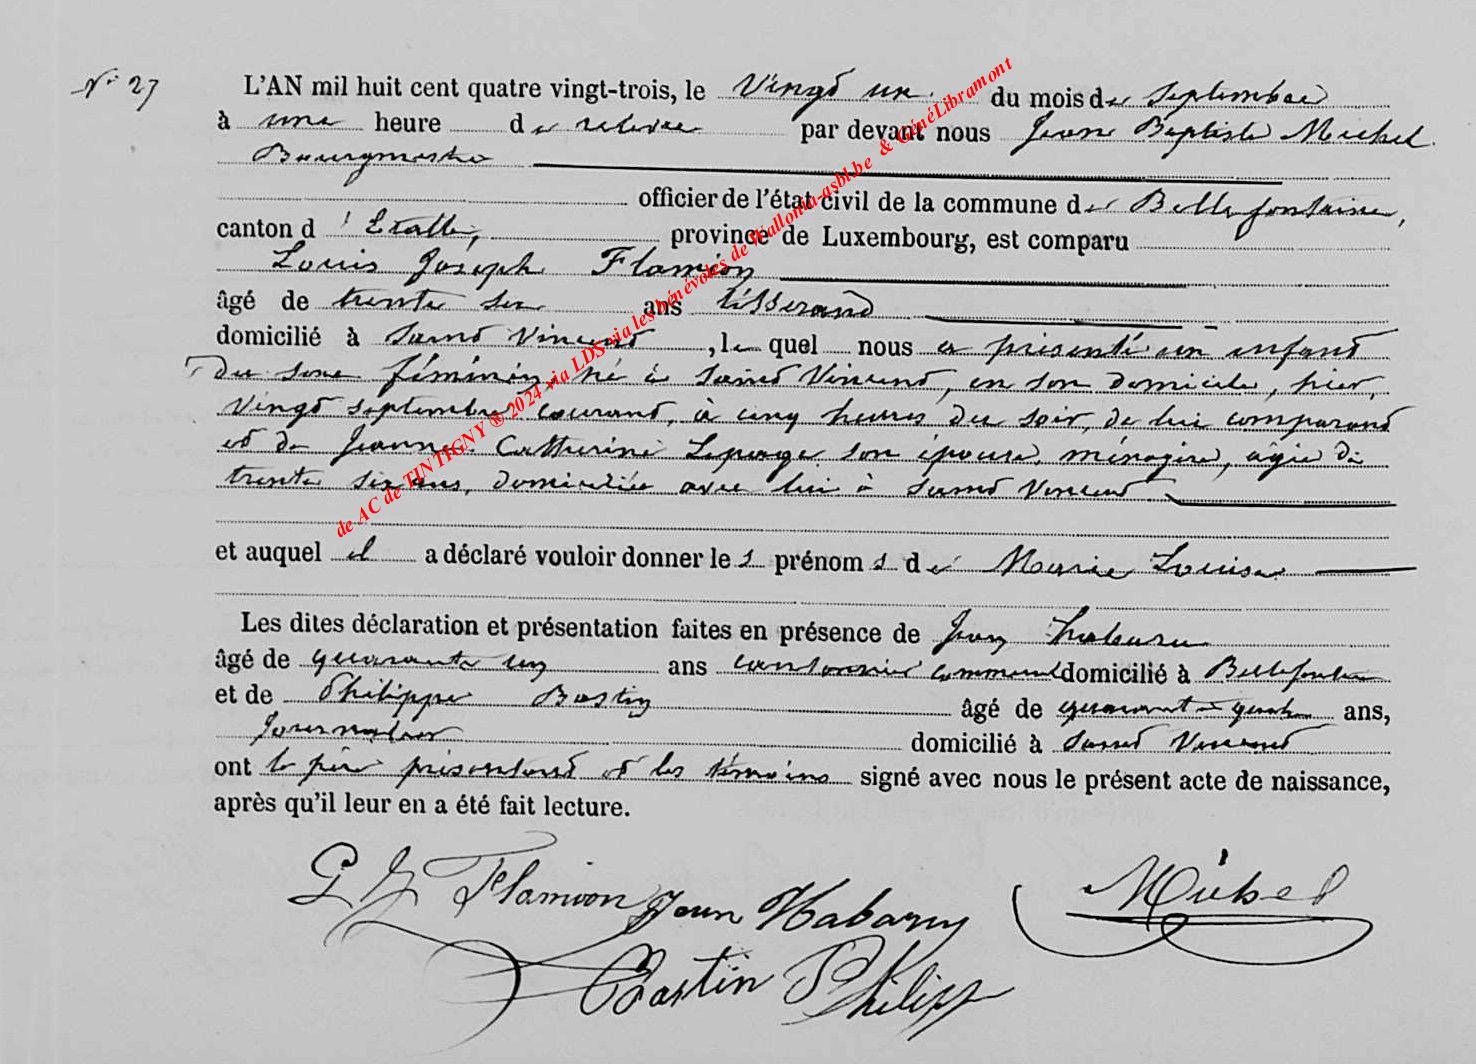 N° 27
L'AN mil huit cent quatre vingt-trois, le Vingt un du mois de Septembre
à une heure de relevée par devant nous Jean Baptiste Michel
Bourgmestre
officier de l'état civil de la commune de Bellefontaine,
canton d'Etalle, province de Luxembourg, est comparu
Louis Joseph Flamion
âgé de trente ans tisserand
domicilié à Saint Vincent, le quel nous a présenté un enfant
du sexe féminin né à Saint Vincent, en son domicile, hier,
vingt septembre courant, à cinq heures du soir, de lui comparant
et de Jeanne Catherine Lepage son épouse, ménagère, âgée de
trente six ans, domiciliée avec lui à Saint Vincent
et auquel il a déclaré vouloir donner les prénoms de Marie Louise
Les dites déclaration et présentation faites en présence de Jean Habaru
âgé de quarante un ans cantonnier communal domicilié à Bellefontaine
et de Philippe Bastin âgé de quarante quatre ans,
Journalier domicilié à Saint Vincent
ont le père présentant et les témoins signé avec nous le présent acte de naissance,
après qu'il leur en a été fait lecture.
Flamion Jean Habary Michel
Bastin Philipp
de AC de TINTIGNY ® 2024 via LDS via les bénévoles de Wallonia-asbl.be & GénéLibramont